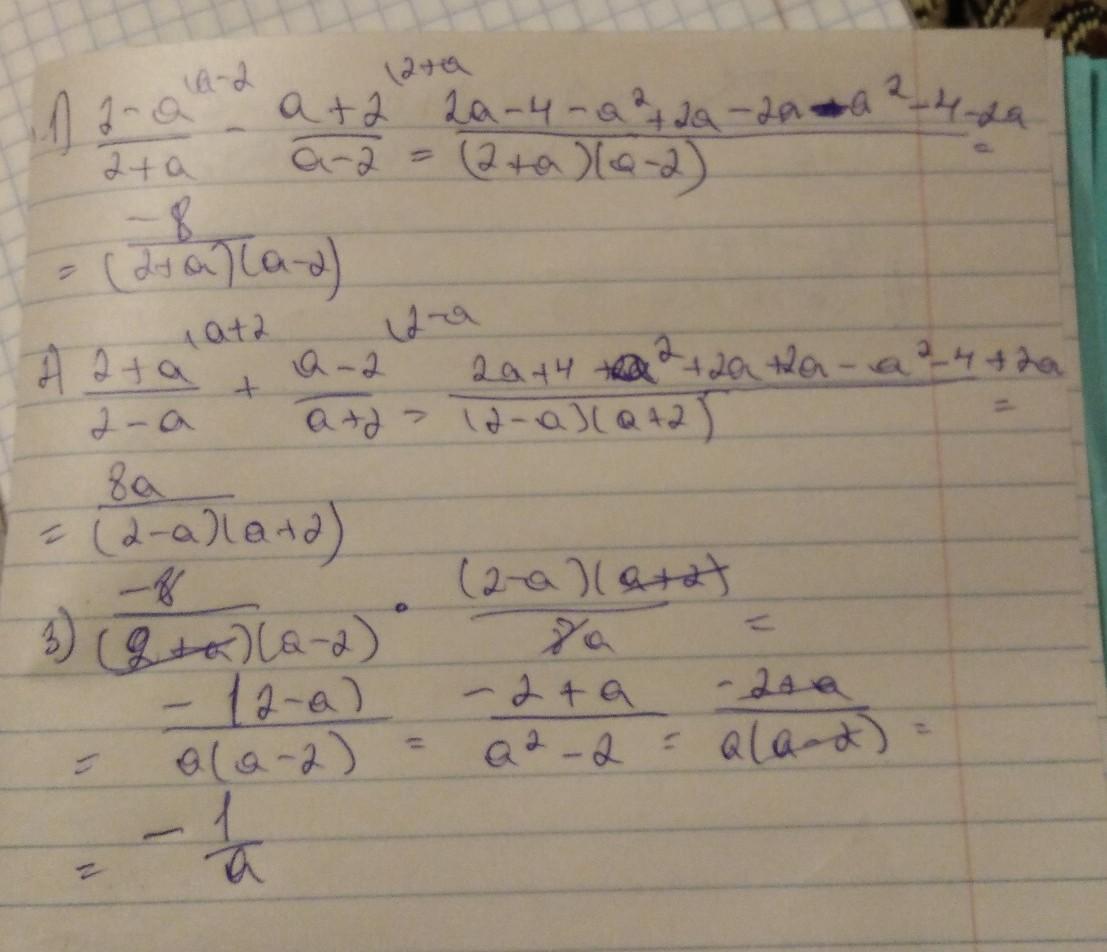 1) (2-a)/(2+a) \a-2 - (a+2)/(a-2) \2+a = (2a-4-a²+2a-2a-a²-4-2a)/((2+a)(a-2)) =
= (-8)/((2+a)(a-2))
2) (2+a)/(2-a) \a+2 + (a-2)/(a+2) \2-a = (2a+4+a²+2a+2a-a²-4+2a)/((2-a)(a+2)) =
= (8a)/((2-a)(a+2))
3) (-8)/((2+a)(a-2)) · ((2-a)(a+2))/(8a) =
= (-1(2-a))/(a(a-2)) = (-2+a)/(a²-2) = (-2+a)/(a(a-2)) =
= -1/a